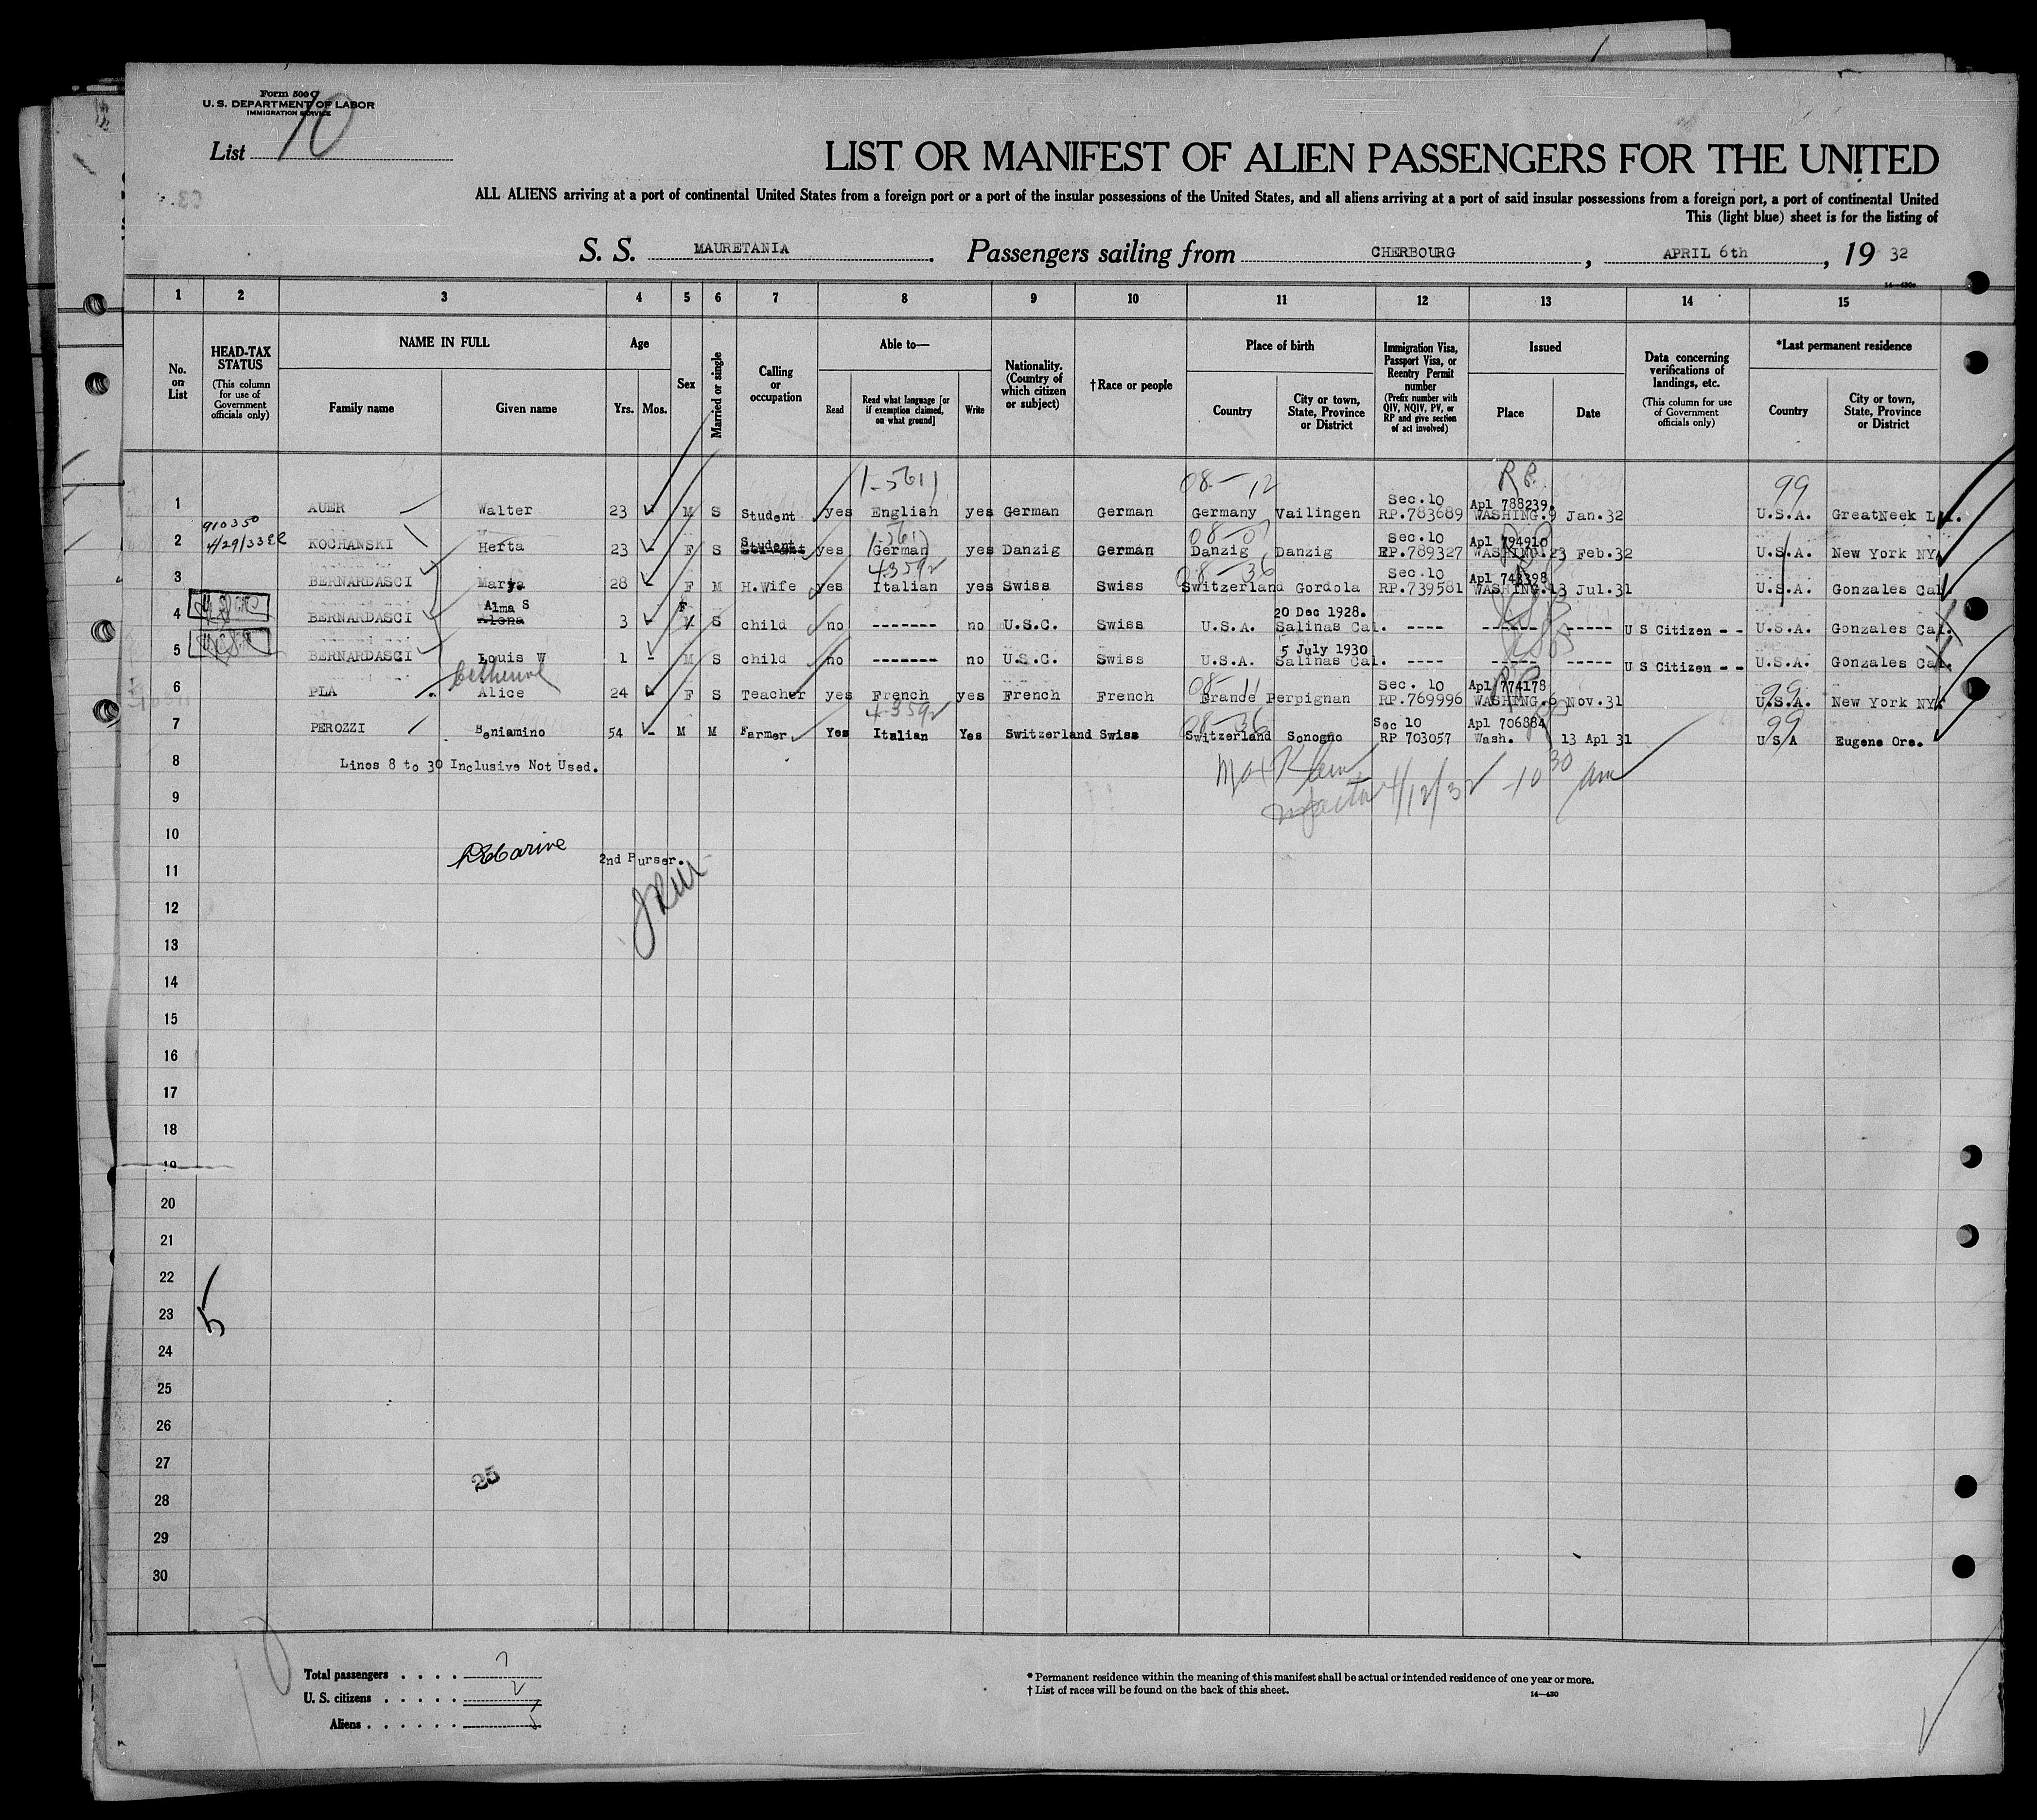 Form 500 C
U. S. DEPARTMENT OF LABOR
IMMIGRATION SERVICE
List 10
LIST OR MANIFEST OF ALIEN PASSENGERS FOR THE UNITED
ALL ALIENS arriving at a port of continental United States from a foreign port or a port of the insular possessions of the United States, and all aliens arriving at a port of said insular possessions from a foreign port, a port of continental United
This (light blue) sheet is for the listing of
S. S. MAURETANIA. Passengers sailing from CHERBOURG, APRIL 6th, 19 32
14—430a
1 2 3 4 5 6 7 8 9 10 11 12 13 14 15
No. on List
HEAD-TAX STATUS (This column for use of Government officials only)
NAME IN FULL Family name Given name
Age Yrs. Mos.
Sex
Married or single
Calling or occupation
Able to— Read Read what language [or if exemption claimed, on what ground] Write
Nationality. (Country of which citizen or subject)
† Race or people
Place of birth Country City or town, State, Province or District
Immigration Visa, Passport Visa, or Reentry Permit number (Prefix number with QIV, NQIV, PV, or RP and give section of act involved)
Issued Place Date
Data concerning verifications of landings, etc. (This column for use of Government officials only)
*Last permanent residence Country City or town, State, Province or District
1-5611 08-12 R.P. 99
1 AUER Walter 23 - M S Student yes English yes German German Germany Vailingen Sec.10 RP.783689 Apl 788239. WASHING. 9 Jan.32 U.S.A. GreatNeek L.I.
910350 4/29/33 1-561 08-07
2 KOCHANSKI Herta 23 - F S Student yes German yes Danzig German Danzig Danzig Sec.10 RP.789327 Apl 794910 WASHING. 23 Feb.32 U.S.A. New York NY.
4-3592 08-36
3 BERNARDASCI Marya 28 F M H.Wife yes Italian yes Swiss Swiss Switzerland Gordola Sec.10 RP.739581 Apl 743398 WASHING. 13 Jul.31 U.S.A. Gonzales Cal.
4 BERNARDASCI Alma S Alona 3 F M S child no ------- no U.S.C. Swiss U.S.A. 20 Dec 1928. Salinas Cal. ---- ----- ----- U S Citizen - - U.S.A. Gonzales Cal.
5 BERNARDASCI Louis W 1 - M S child no ------- no U.S.C. Swiss U.S.A. 5 July 1930 Salinas Cal. ---- ----- ----- U S Citizen - - U.S.A. Gonzales Cal.
08-11 99
6 PLA Alice 24 F S Teacher yes French yes French French Frande Perpignan Sec. 10 RP.769996 Apl 774178 WASHING. 6 Nov.31 U.S.A. New York NY.
4-3592 08-36 99
7 PEROZZI Beniamino 54 - M M Farmer Yes Italian Yes Switzerland Swiss Switzerland Sonogno Sec 10 RP 703057 Apl 706884 Wash. 13 Apl 31 U S A Eugene Ore.
8 Lines 8 to 30 Inclusive Not Used.
4/12/32 10 30 am
9
10
2nd Purser.
11
12
13
14
15
16
17
18
19
20
21
22
23
5
24
25
26
27
25
28
29
30
10
Total passengers . . . . 7
U. S. citizens . . . . . 2
Aliens . . . . . . 5
* Permanent residence within the meaning of this manifest shall be actual or intended residence of one year or more.
† List of races will be found on the back of this sheet.
14—430